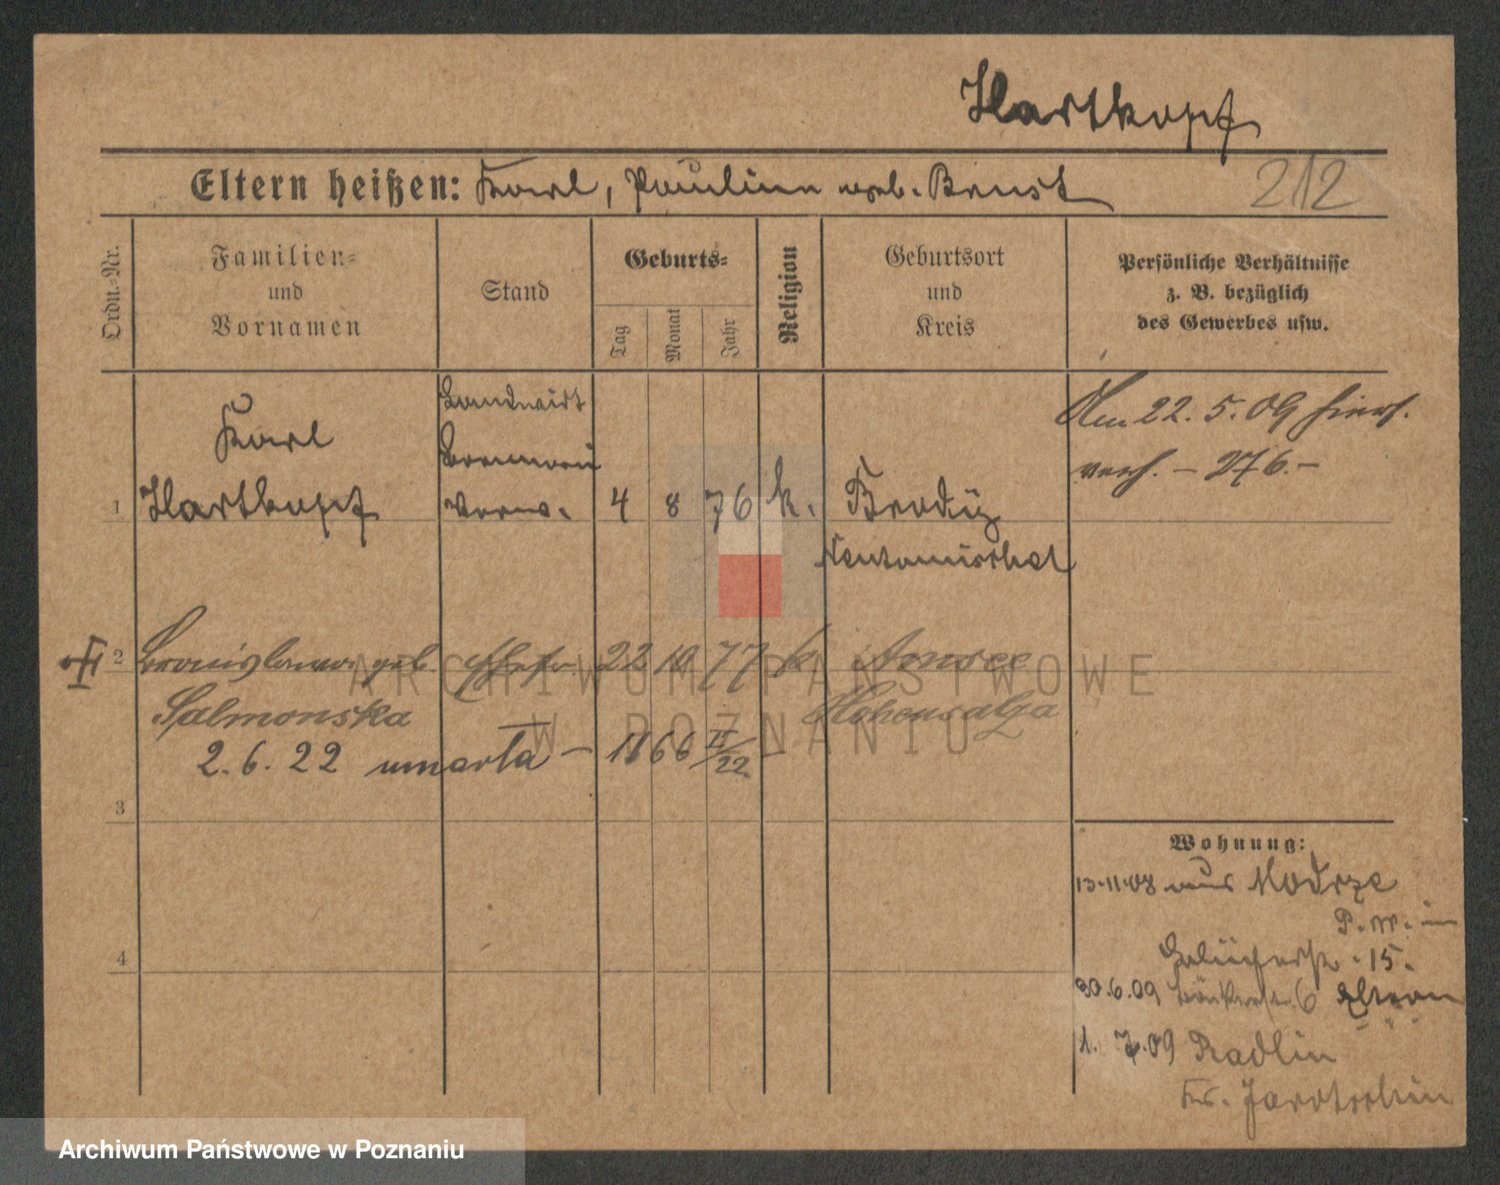 Hartkopf
Eltern heißen: Karl, Pauline geb. Brust
212
Ordn.-Nr.
Familien-
und
Vornamen
Stand
Geburts-
Tag
Monat
Jahr
Religion
Geburtsort
und
Kreis
Persönliche Verhältnisse
z. B. bezüglich
des Gewerbes usw.
1
Karl
Hartkopf
Landwirt
Verw.
4 8 76 k.
Brody
Neutomischel
Am 22. 5. 09 hiers.
verh. – 276. –
2
Bronislawa geb.
Salmonska
Ehefr. 22 10 77 k
Amsee
Hohensalza
2. 6. 22 umarła – 1166 II/22 –
3
4
Wohnung:
13.11.08 aus Modrze
P. W.
15.
30.6.09 6 Eltern
1. 7.09 Radlin
Kr. Jarotschin
ARCHIWUM PAŃSTWOWE
W POZNANIU
Archiwum Państwowe w Poznaniu